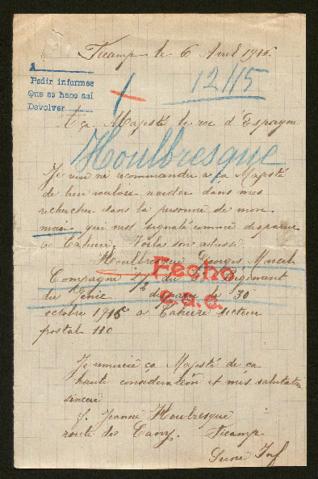 Fécamp le 6 Avril 1916
1
Pedir informes
Que se haga así
Devolver
12/15
A ça Majesté le roi d'Espagne
Houlbresque
Je vien me recommander a ça Majesté
de bien vouloir m'aider dans mes
recherches dans la personne de mon
mari qui m'est signalé comme disparu
a Tahure. Voila son adresse
Houlbresque Georges Marcel
Compagnie 7/2 du Regiment
du Génie disparu le 30
octobre 1915 a Tahure secteur
postal 110
Fecho
Je remercie ça Majesté de ça
haute consideration et mes salutation
sincere
f. Jeanne Houlbresque
route de Cany. Fecamp
Seine Inf